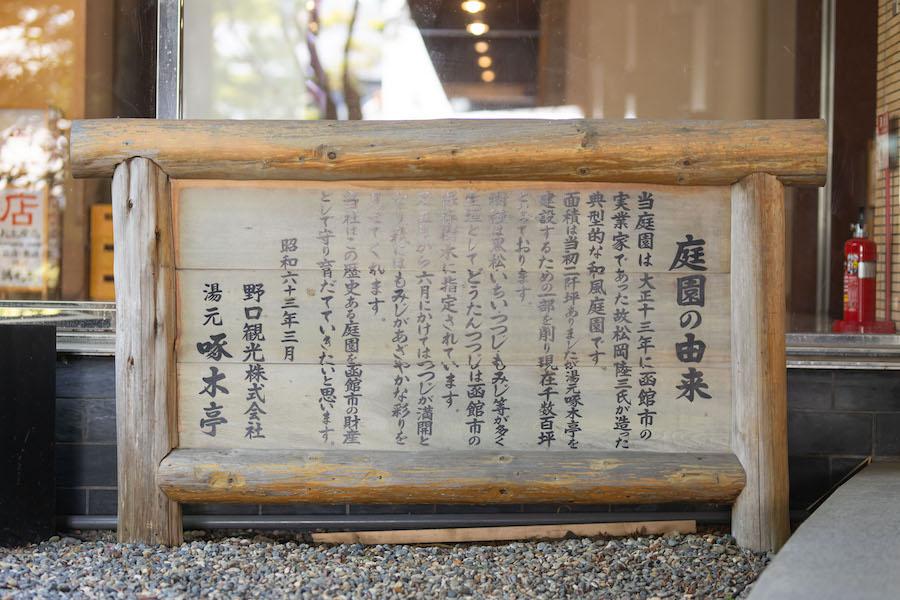 庭園の由来
当庭園は大正十三年に函館市の
実業家であった故松岡陸三氏が造った
典型的な和風庭園です。
面積は当初二阡坪ありましたが湯元啄木亭を
建設するための一部を削り現在千数百坪
となっております。
樹種は黒松いちいつつじもみじ等が多く
生垣としてどうだんつつじは函館市の
保存樹木に指定されています。
から六月にかけてはつつじが満開と
なり秋にはもみじがあざやかな彩りを
くれます。
当社はこの歴史ある庭園を函館市の財産
として守り育だてていきたいと思います
昭和六十三年三月
野口観光株式会社
湯元 啄木亭
店
消火器